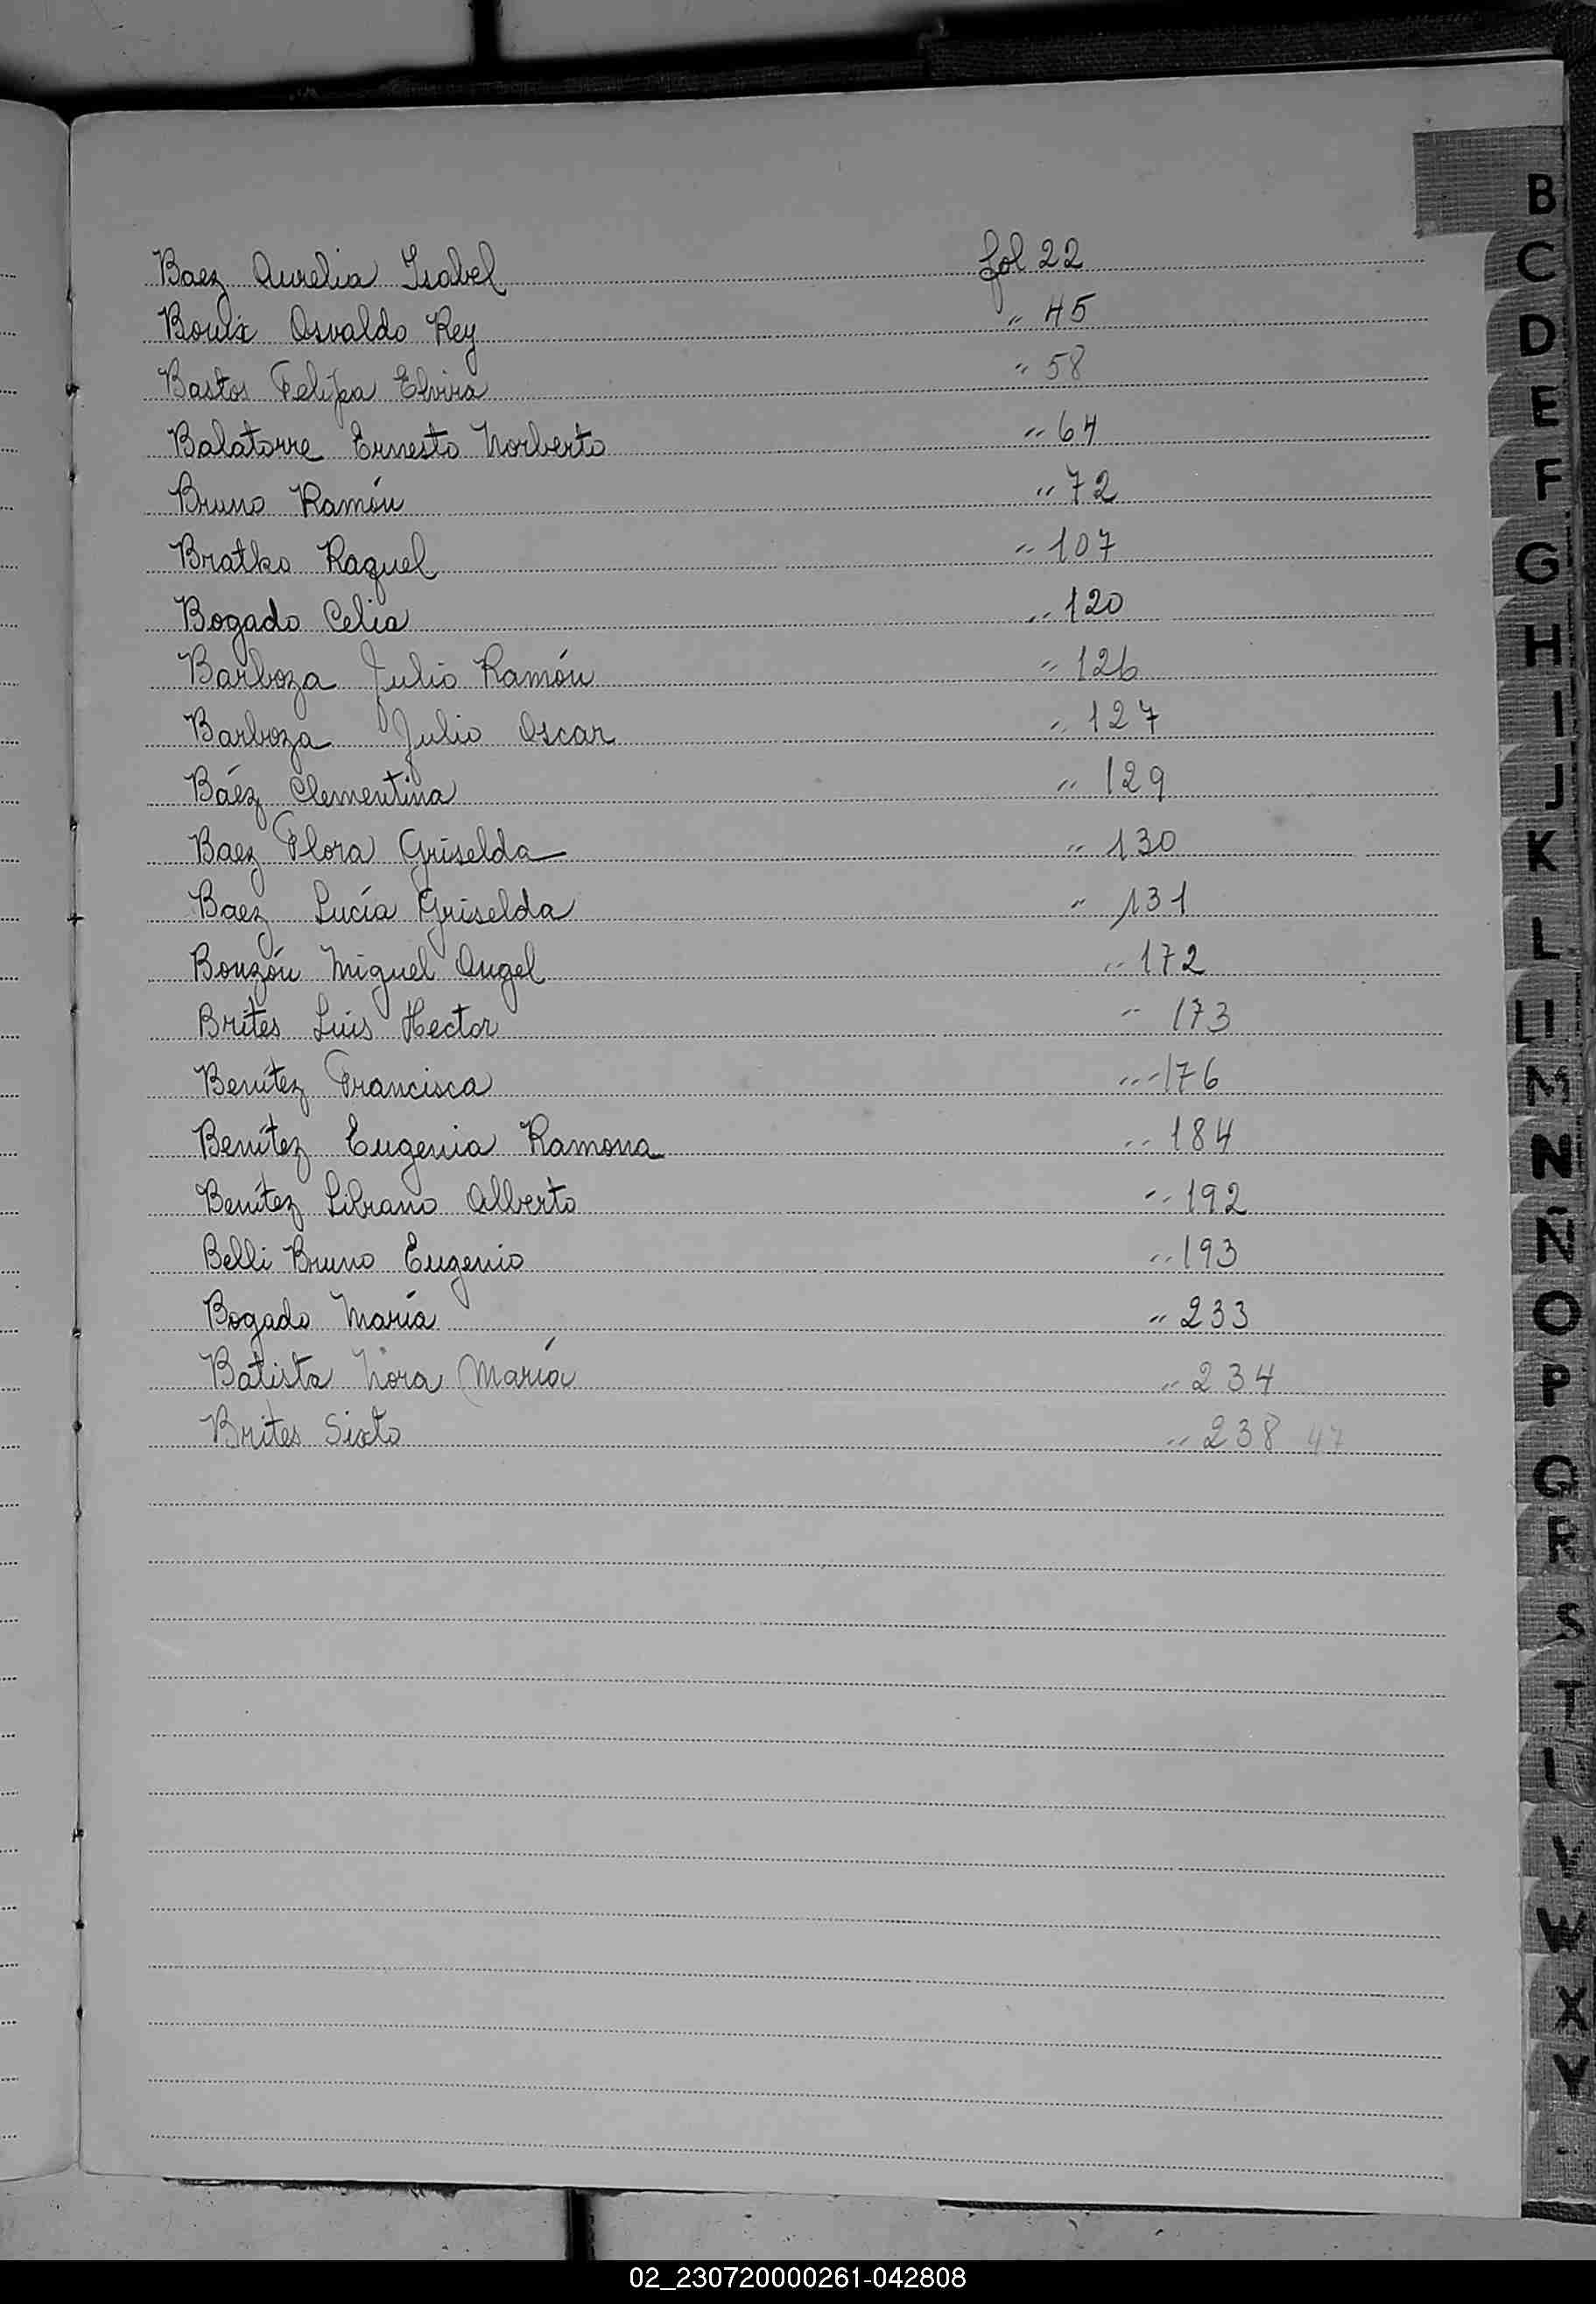 Baez Aurelia Isabel fol 22
Bouix Osvaldo Rey " 45
Bastos Felipa Elvira " 58
Balatorre Ernesto Norberto " 64
Bruno Ramón " 72
Bratko Raquel " 107
Bogado Celia " 120
Barboza Julio Ramón " 126
Barboza Julio Oscar " 127
Báez Clementina " 129
Baez Flora Griselda " 130
Baez Lucía Griselda " 131
Bonzón Miguel Angel " 172
Brites Luis Hector " 173
Benítez Francisca " 176
Benítez Eugenia Ramona " 184
Benítez Librano Alberto " 192
Belli Bruno Eugenio " 193
Bogado María " 233
Batista Nora María " 234
Brites Sixto " 238 47
B
C
D
E
F
G
H
I
J
K
L
Ll
M
N
Ñ
O
P
Q
R
S
T
V
W
X
Y
02_230720000261-042808